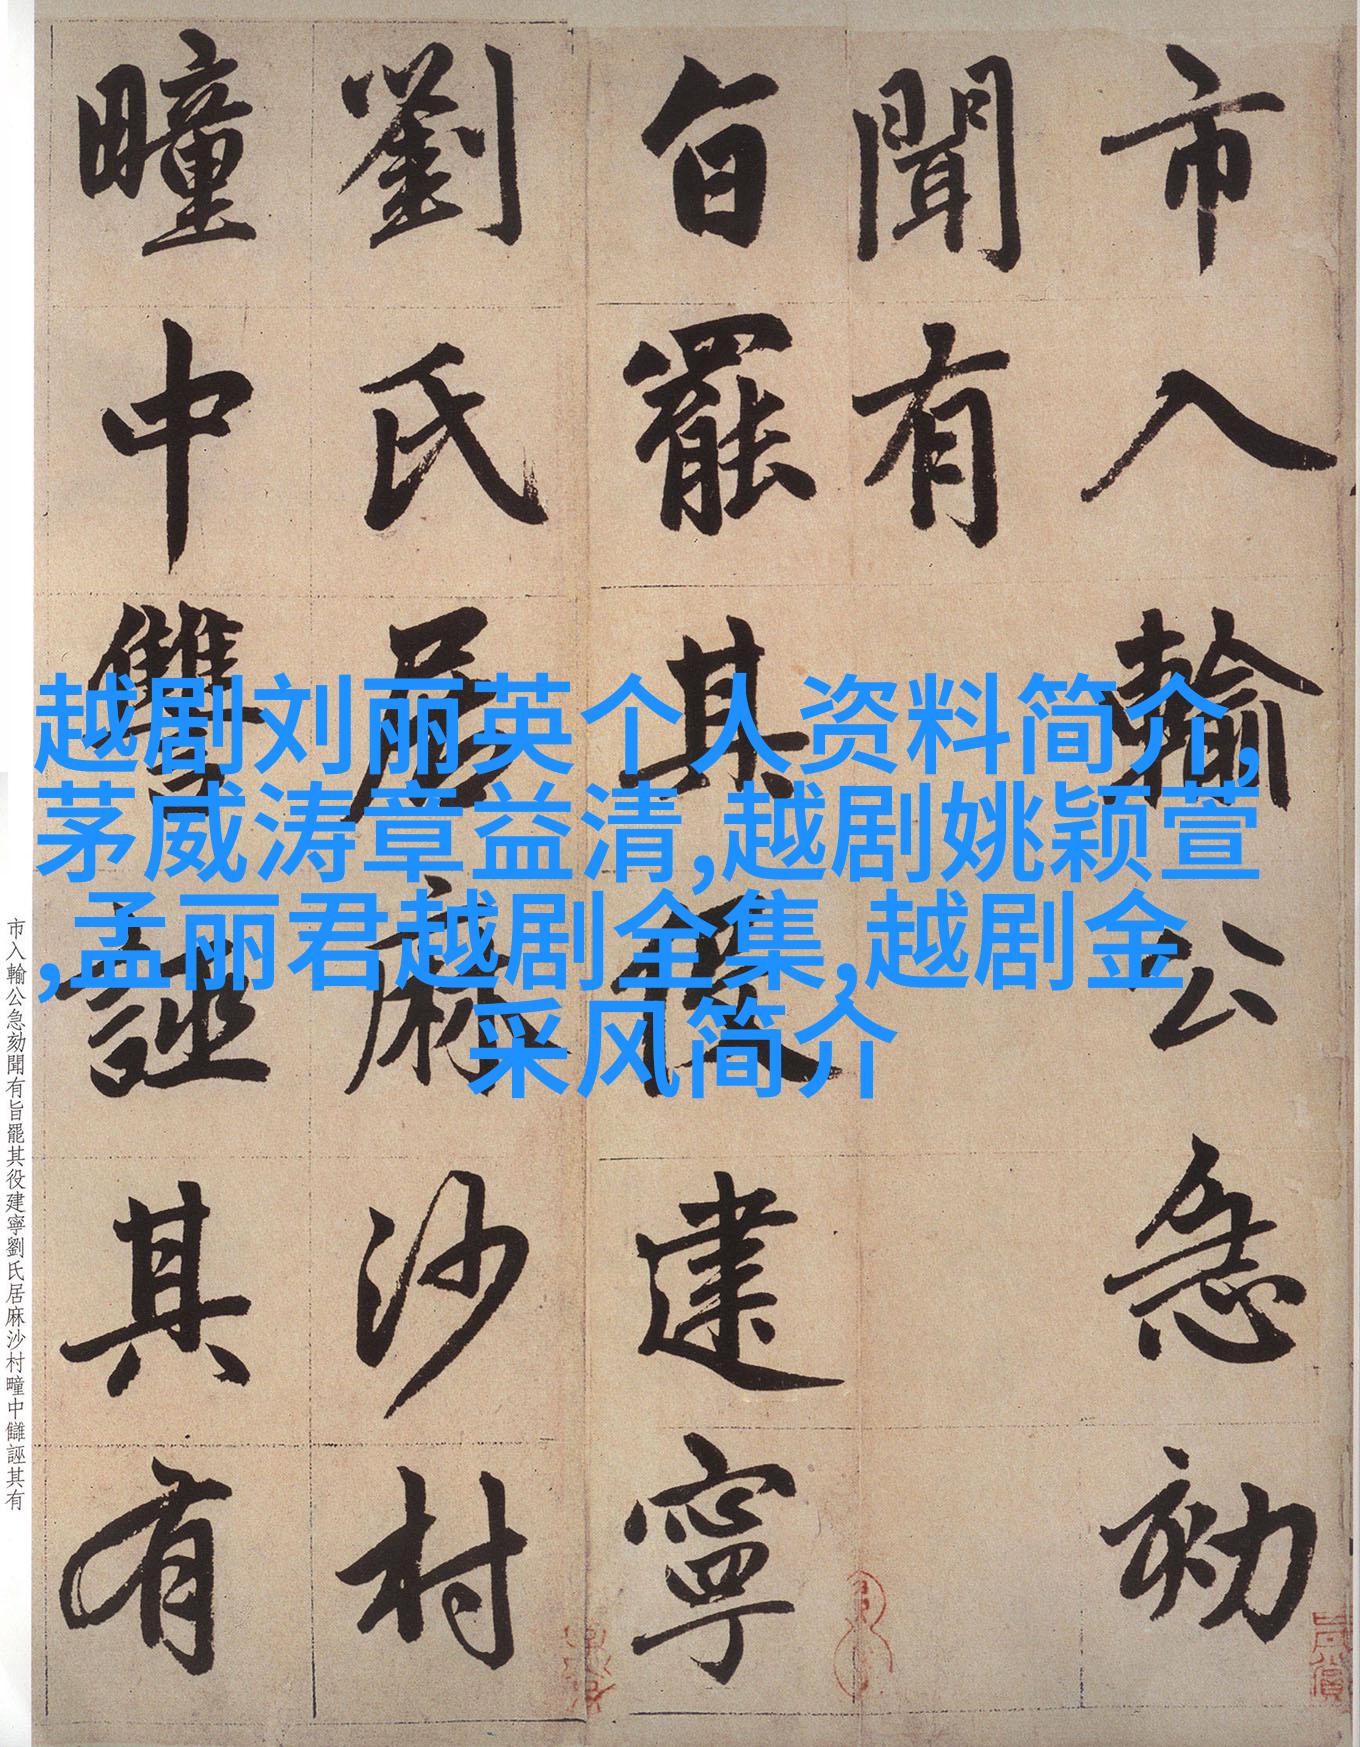 市入輸公急劾
聞有
旨罷其役建寧
劉氏居麻沙村
疃中讐誣其有
越剧刘丽英个人资料简介,
茅威涛章益清,越剧姚颖萱
,孟丽君越剧全集,越剧金
采风简介
市入輸公急劾聞有旨罷其役建寧劉氏居麻沙村疃中讎誣其有